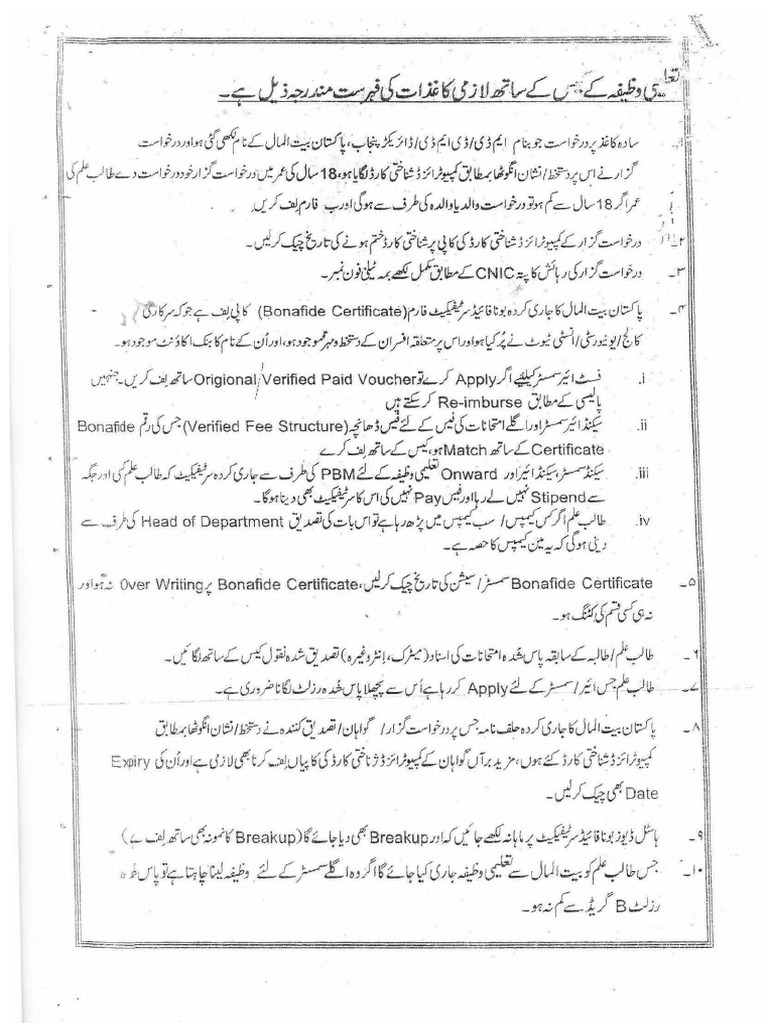 تعلیمی وظیفہ کے کیس کے ساتھ لازمی کاغذات کی فہرست مندرجہ ذیل ہے۔
سادہ کاغذ پر درخواست جو بنام ایم ڈی/ڈی ایم ڈی/ڈائریکٹر پنجاب، پاکستان بیت المال کے نام لکھی گئی ہو اور درخواست
گزار نے اس پر دستخط/نشان انگوٹھا بمطابق کمپیوٹرائزڈ شناختی کارڈ لگایا ہو، 18 سال کی عمر میں درخواست گزار خود درخواست دے طالب علم کی
عمر اگر 18 سال سے کم ہو تو درخواست والد یا والدہ کی طرف سے ہوگی اور ب فارم لف کریں۔
۲۔ درخواست گزار کے کمپیوٹرائزڈ شناختی کارڈ کی کاپی پر شناختی کارڈ ختم ہونے کی تاریخ چیک کرلیں۔
۳۔ درخواست گزار کی رہائش کا پتہ CNIC کے مطابق مکمل لکھے بمہ ٹیلی فون نمبر۔
۴۔ پاکستان بیت المال کا جاری کردہ بونا فائیڈ سرٹیفکیٹ فارم (Bonafide Certificate) کاپی لف ہے جو کہ سرکاری
کالج/یونیورسٹی/انسٹی ٹیوٹ نے پُر کیا ہو اور اس پر متعلقہ افسران کے دستخط و مہر موجود ہو، اور اُن کے نام کا بنک اکاؤنٹ موجود ہو۔
i. فسٹ ائیر سمسٹر کیلئیے اگر Apply کرے تو Origional/Verified Paid Voucher ساتھ لف کریں۔ جنہیں
پالیسی کے مطابق Re-imburse کر سکتے ہیں
ii. سیکنڈ ائیر سمسٹر اور اگلے امتحانات کی فیس کے لئے فیس ڈھانچہ (Verified Fee Structure) جس کی رقم Bonafide
Certificate کے ساتھ Match ہو، کیس کے ساتھ لف کرے
iii. سیکنڈ سمسٹر، سیکنڈ ائیر اور Onward تعلیمی وظیفہ کے لئے PBM کی طرف سے جاری کردہ سرٹیفکیٹ کہ طالب علم کسی اور جگہ
سے Stipend نہیں لے رہا اور فیس Pay نہیں کی اس کا سرٹیفکیٹ بھی دینا ہوگا۔
iv. طالب علم اگر کس کیمپس/ سب کیمپس میں پڑھ رہا ہے تو اس بات کی تصدیق Head of Department کی طرف سے
دینی ہوگی کہ یہ مین کیمپس کا حصہ ہے۔
۵۔ Bonafide Certificate سمسٹر/سیشن کی تاریخ چیک کرلیں، Bonafide Certificate پر Over Writing نہ ہو اور
نہ ہی کسی قسم کی کٹنگ ہو۔
۶۔ طالب علم/طالبہ کے سابقہ پاس شُدہ امتحانات کی اسناد (میٹرک، انٹر وغیرہ) تصدیق شدہ نقول کیس کے ساتھ لگائیں۔
۷۔ طالب علم جس ائیر/سمسٹر کے لئے Apply کر رہا ہے اُس سے پچھلا پاس شُدہ رزلٹ لگانا ضروری ہے۔
۸۔ پاکستان بیت المال کا جاری کردہ حلف نامہ جس پر درخواست گزار/ گواہان/تصدیق کنندہ نے دستخط/نشان انگوٹھا بمطابق
کمپیوٹرائزڈ شناختی کارڈ کئے ہوں، مزید برآں گواہان کے کمپیوٹرائزڈ شناختی کارڈ کی کاپیاں لف کرنا بھی لازمی ہے اور اُن کی Expiry
Date بھی چیک کرلیں۔
۹۔ ہاسٹل ڈیوز بونا فائیڈ سرٹیفکیٹ پر ماہانہ لکھے جائیں کہ اور Breakup بھی دیا جائے گا (Breakup کا نمونہ بھی ساتھ لف ہے)
۱۰۔ جس طالب علم کو بیت المال سے تعلیمی وظیفہ جاری کیا جائے گا اگر وہ اگلے سمسٹر کے لئے وظیفہ لینا چاہتا ہے تو پاس شدہ
رزلٹ B گریڈ سے کم نہ ہو۔